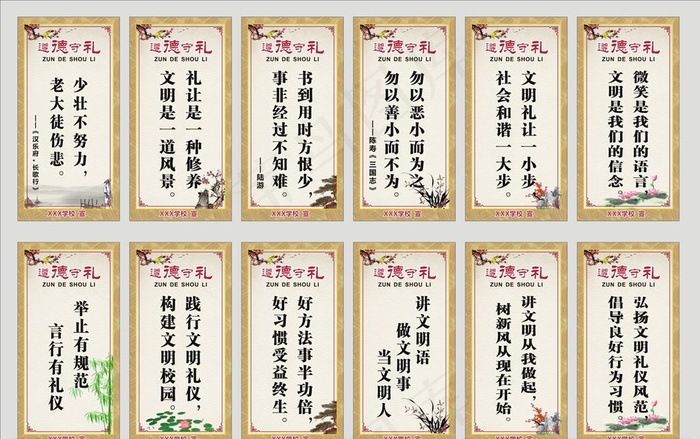 遵德守礼
ZUN DE SHOU LI
少壮不努力，
老大徒伤悲。
——《汉乐府·长歌行》
XXX学校·宣
遵德守礼
ZUN DE SHOU LI
礼让是一种修养
文明是一道风景。
XXX学校·宣
遵德守礼
ZUN DE SHOU LI
书到用时方恨少，
事非经过不知难。
——陆游
XXX学校·宣
遵德守礼
ZUN DE SHOU LI
勿以恶小而为之
勿以善小而不为。
——陈寿《三国志》
XXX学校·宣
遵德守礼
ZUN DE SHOU LI
文明礼让一小步
社会和谐一大步。
XXX学校·宣
遵德守礼
ZUN DE SHOU LI
微笑是我们的语言
文明是我们的信念。
XXX学校·宣
遵德守礼
ZUN DE SHOU LI
举止有规范
言行有礼仪
遵德守礼
ZUN DE SHOU LI
践行文明礼仪，
构建文明校园。
遵德守礼
ZUN DE SHOU LI
好方法事半功倍，
好习惯受益终生。
遵德守礼
ZUN DE SHOU LI
讲文明语
做文明事
当文明人
遵德守礼
ZUN DE SHOU LI
讲文明从我做起，
树新风从现在开始。
遵德守礼
ZUN DE SHOU LI
弘扬文明礼仪风范，
倡导良好行为习惯。